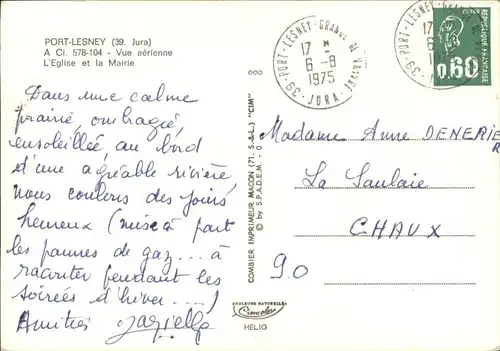 PORT-LESNEY (39. Jura)
A Ci. 578-104 - Vue aérienne
L'Eglise et la Mairie
Dans une calme
prairie ombragée,
ensoleillée au bord
d'une agréable rivière
nous coulons des jours
heureux (mise à part
les pannes de gaz... à
raconter pendant les
soirées d'hiver....)
Amitiés
COMBIER IMPRIMEUR MACON (71. S.-&-L.) "CIM"
© by S.P.A.D.E.M. - 0
000
39-PORT-LESNEY-GRANGE DE VAIVRE
17 H
6-8
1975
JURA
REPUBLIQUE FRANÇAISE
0,60
Madame Anne DENERIER
La Saulaie
CHAUX
90
COULEURS NATURELLES
Cimcolor
HELIO